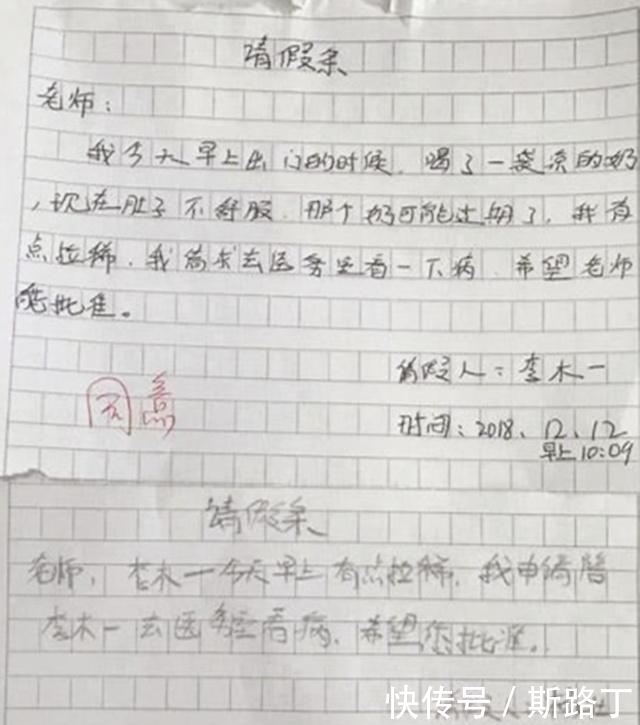 请假条
老师:
我今天早上出门的时候,喝了一袋凉的奶
,现在肚子不舒服.那个奶可能过期了,我有
点拉稀,我需求去医务室看一下病.希望老师
能批准。
请假人:李木一
时间:2018.12.12
早上10:09
同意
请假条
老师,李木一今天早上有点拉稀,我申请陪
李木一去医务室看病,希望您批准。
快传号/斯路丁